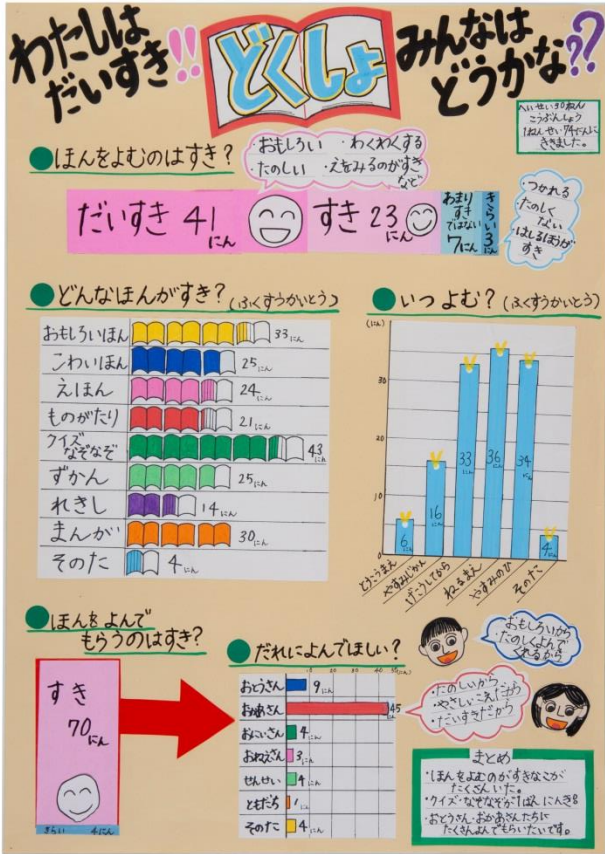 わたしは
だいすき!!
どくしょ
みんなは
どうかな??
へいせい30ねん
こうぶんしょう
1ねんせい74にんに
ききました。
ほんをよむのはすき?
・おもしろい ・わくわくする
・たのしい ・えをみるのがすき
など
だいすき 41にん
すき 23にん
あまり
すき
ではない
7にん
きらい3にん
・つかれる
・たのしく
ない
・はしるほうが
すき
どんなほんがすき?(ふくすうかいとう)
おもしろいほん 33にん
こわいほん 25にん
えほん 24にん
ものがたり 21にん
クイズ
なぞなぞ 43にん
ずかん 25にん
れきし 14にん
まんが 30にん
そのた 4にん
いつよむ?(ふくすうかいとう)
(にん)
30
20
10
0
6にん
16にん
33にん
36にん
34にん
4にん
とうこうまえ
やすみじかん
げこうしてから
ねるまえ
やすみのひ
そのた
ほんをよんで
もらうのはすき?
すき
70にん
きらい 4にん
だれによんでほしい?
10 20 30 40 50(にん)
おとうさん 9にん
おかあさん 45にん
おにいさん 4にん
おねえさん 3にん
せんせい 4にん
ともだち 1にん
そのた 4にん
・おもしろいから
・たのしくよんで
くれるから
・たのしいから
・やさしいこえだから
・だいすきだから
まとめ
・ほんをよむのがすきなこが
たくさんいた。
・クイズ・なぞなぞが1ばんにんき
・おとうさん・おかあさんたちに
たくさんよんでもらいたいです。